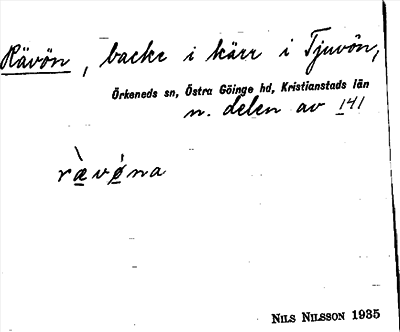 Rävön, backe i kärr i Tjuvön,
Örkeneds sn, Östra Göinge hd, Kristianstads län
n. delen av 141
ræ̀vǿna
NILS NILSSON 1935